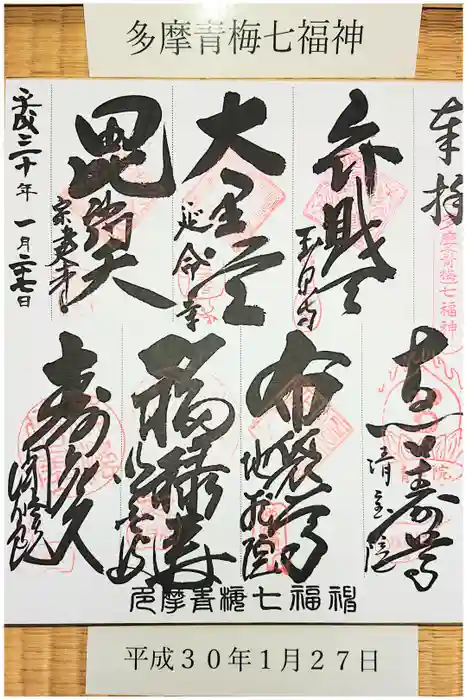 多摩青梅七福神
奉拝
多摩青梅七福神
弁財天
玉泉寺
大黒天
延命寺
毘沙門天
宗建寺
平成三十年一月二十七日
恵比寿尊
清宝院
布袋尊
地蔵院
福禄寿
寿老人
聞修院
多摩青梅七福神
平成30年1月27日